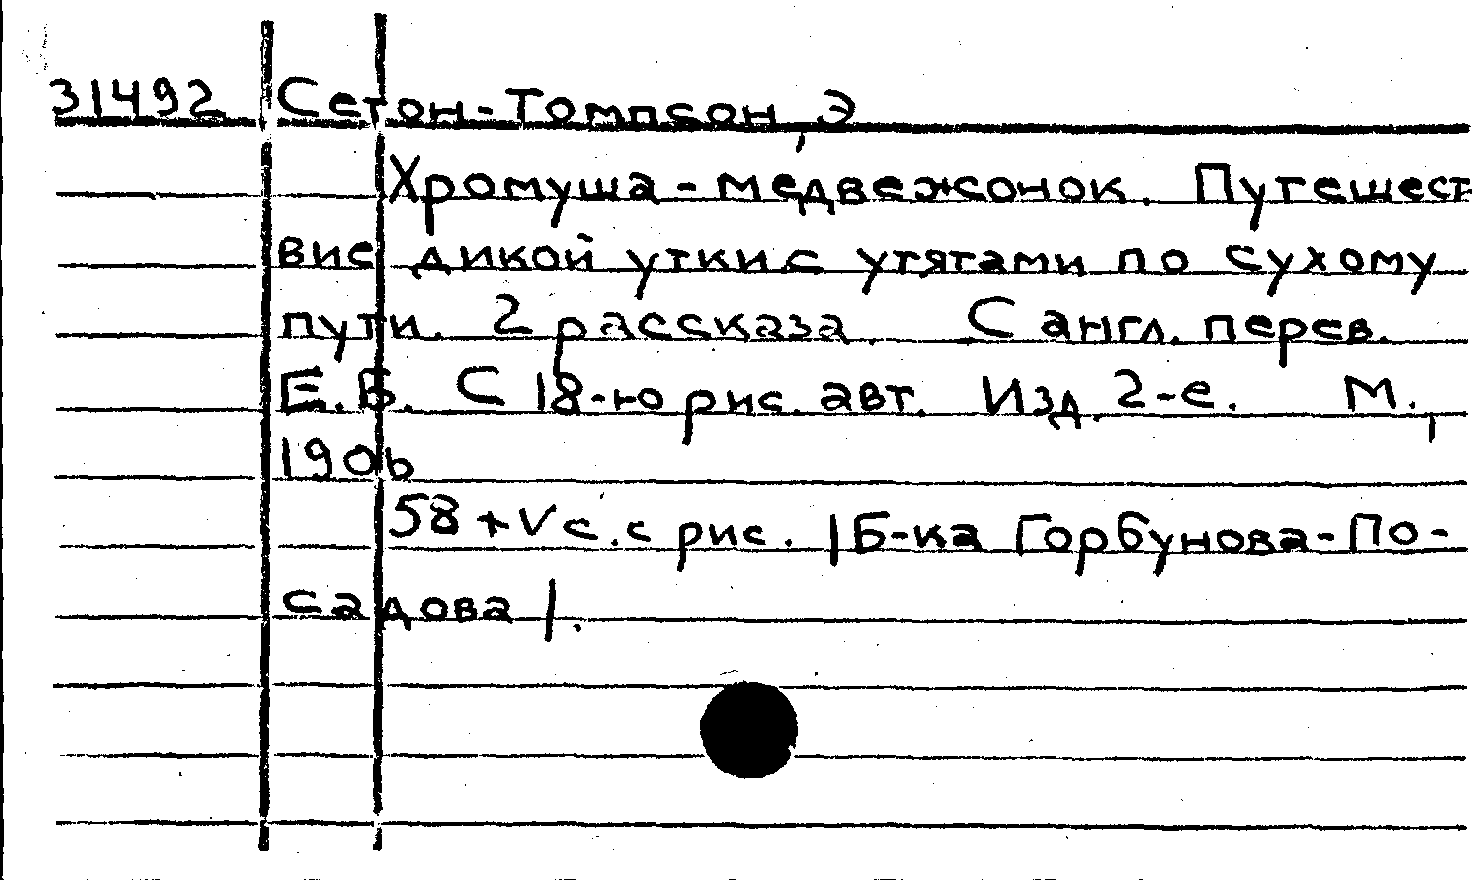 31492 Сетон-Томпсон, Э
Хромуша-медвежонок. Путешест
вие дикой утки с утятами по сухому
пути. 2 рассказа. С англ. перев.
Е.Б. С 18-ю рис. авт. Изд. 2-е. М.,
1906
58+V с. с рис. |Б-ка Горбунова-По-
садова|.